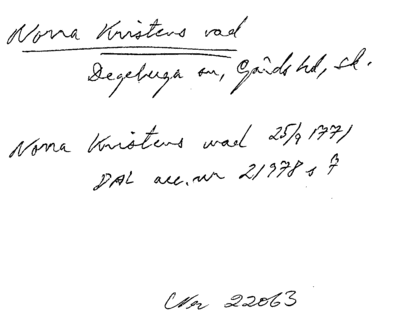 Norra Kristens vad
Degeberga sn, Gärds hd, Sk.
Norra Kristens wad 25/9 1771
DAL acc. nr 21978 s 7
22063